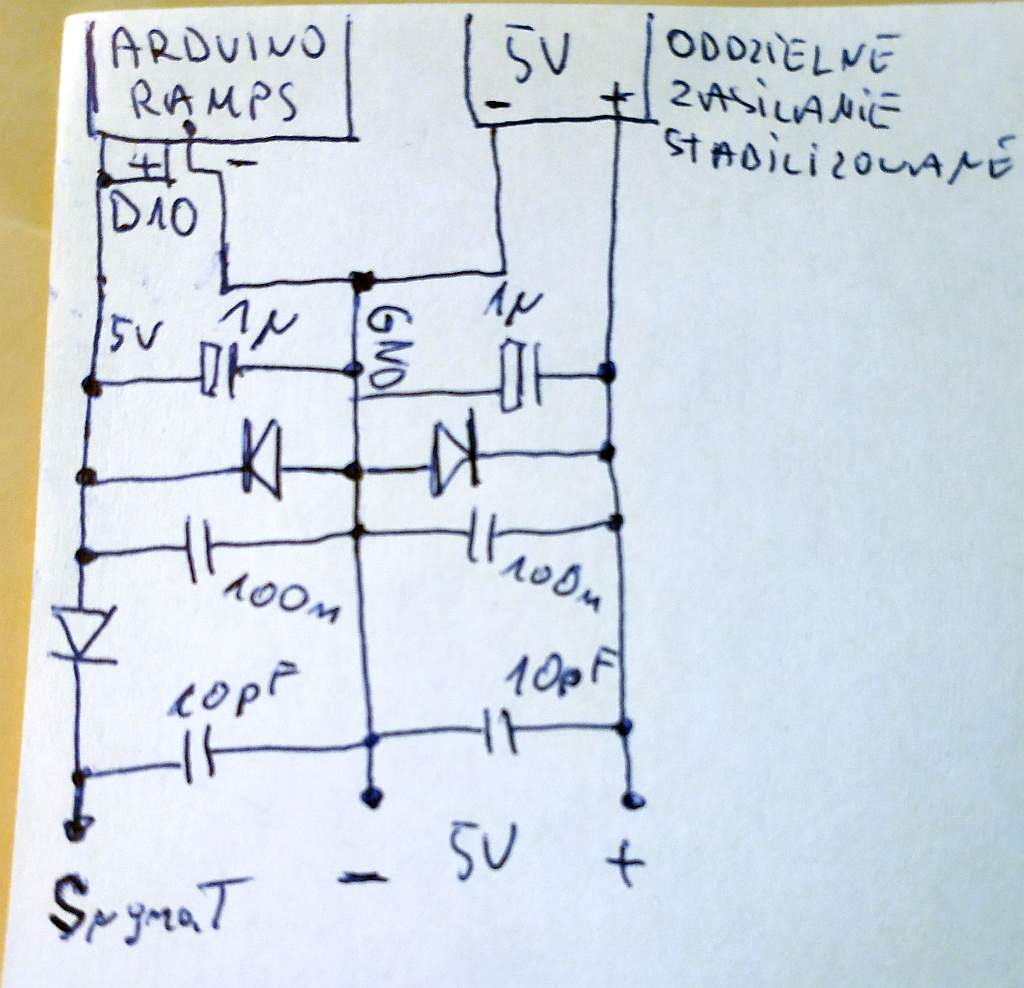 ARDUINO
RAMPS
5V
- +
ODDZIELNE
ZASILANIE
STABILIZOWANE
+ -
D10
5V
1µ
GND
1µ
100n
100n
10pF
10pF
SYGNAŁ
- 5V +